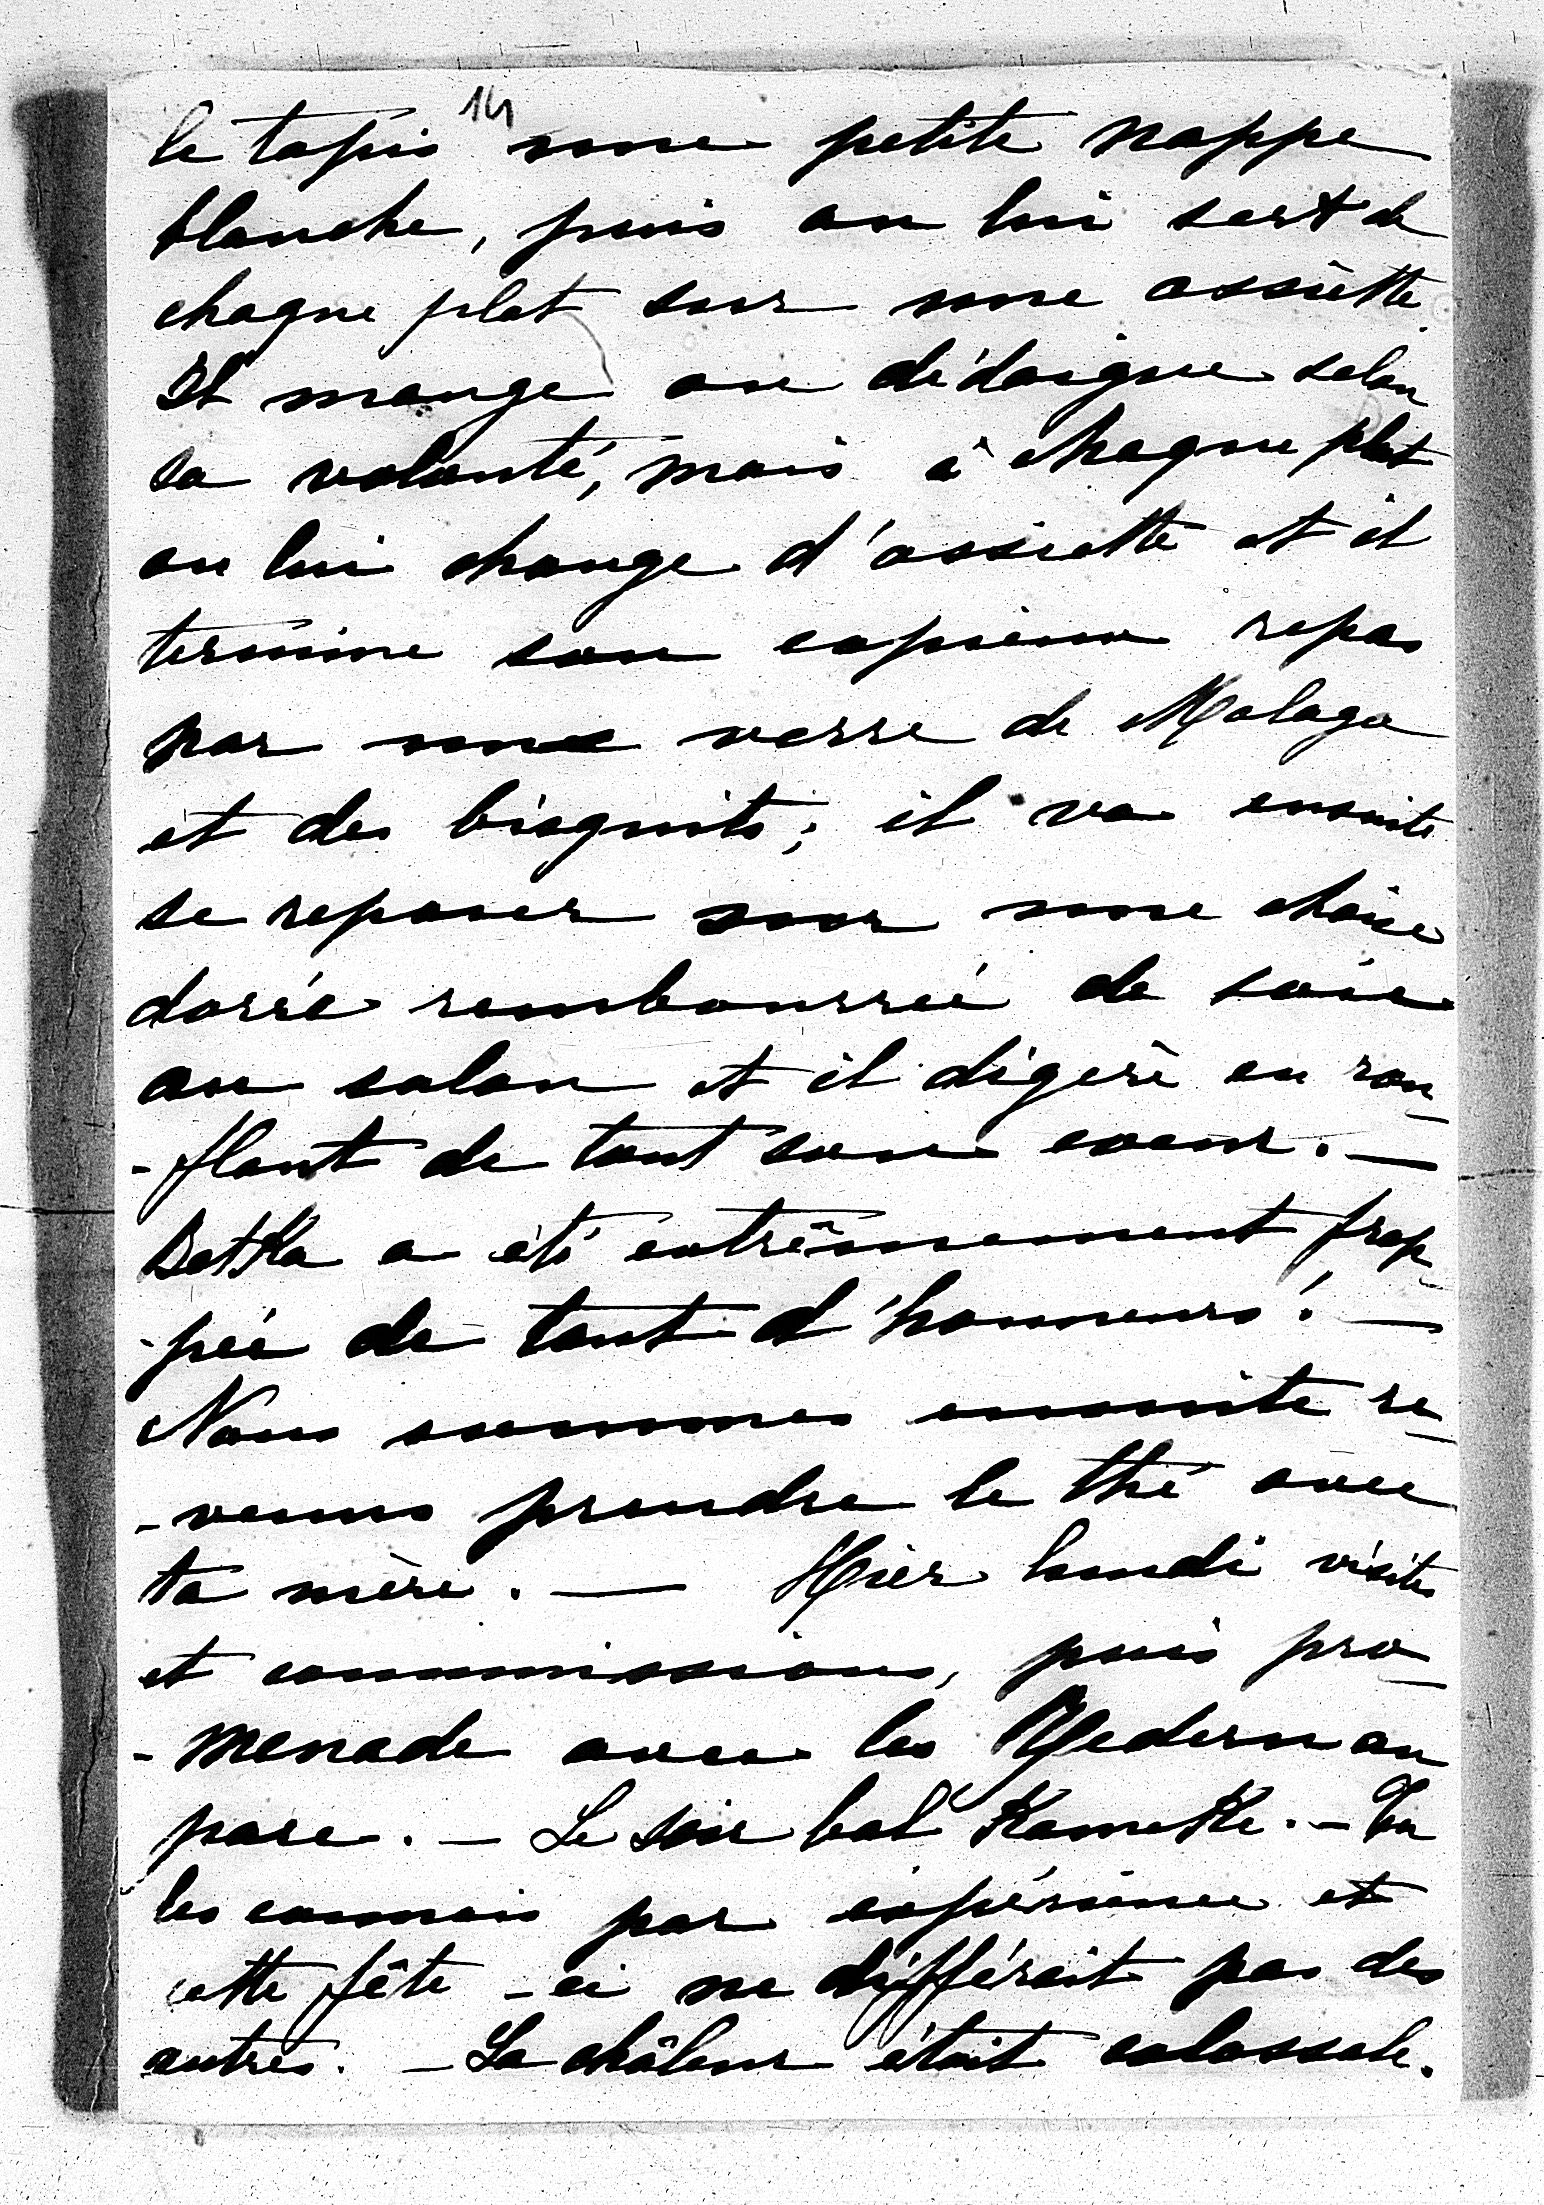 14
le tapis une petite nappe
blanche, puis on lui sert de
chaque plat sur une assiètte.
Il mange ou dédaigne selon
sa volonté, mais à chaque plat
on lui change d'assiette et il
termine son copieux repas
par une verre de Malaga
et des bisquits; il va ensuite
se reposer sur une chaise
dorée rembourrée de soie
au salon et il digère en ron-
-flant de tout son coeur. —
Betka a été extrêmement frap-
-pée de tant d'honneurs! —
Nous sommes ensuite re-
-venus prendre le thé avec
ta mère. — Hier lundi visites
et commissions, puis pro-
-menade avec les Medem au
parc. — Le soir bal Kameke. — Tu
les connais par expérience et
cette fête-ci ne différait pas des
autres. — La châleur était colossale.